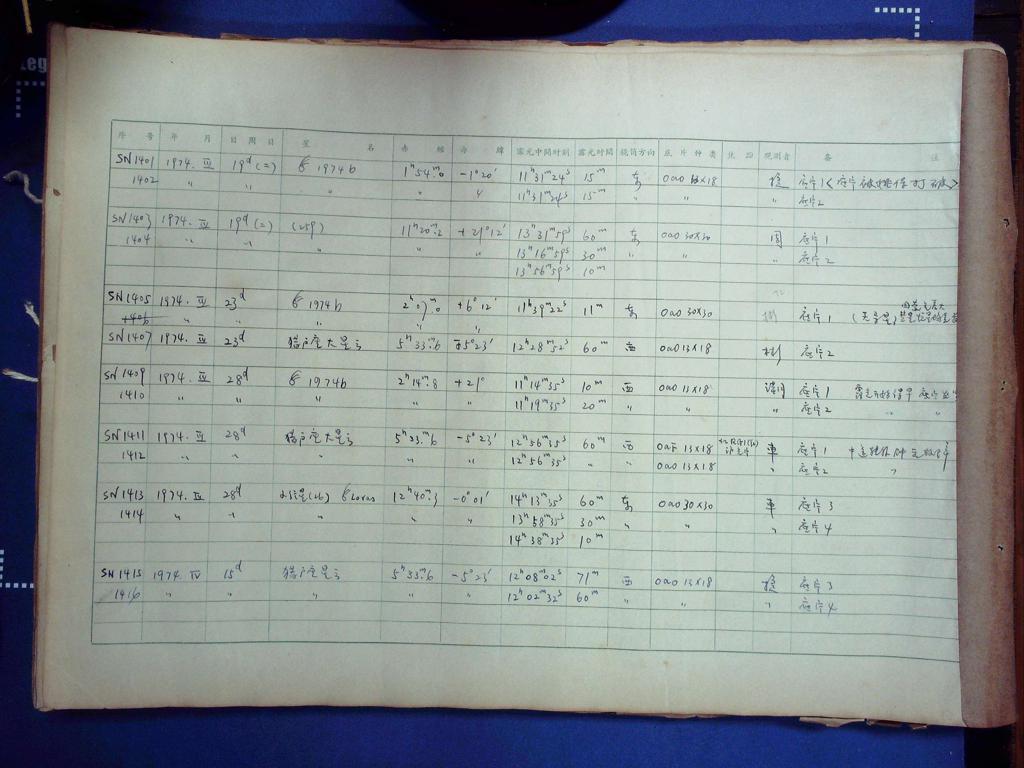 eg
片 号 年 月 日 周 日 星 名 赤 经 赤 纬 露光中间时刻 露光时间 镜筒方向 底 片 种 类 观测者 备 注
SN1401 1974. III 19ᵈ(二) 1974b 1ʰ54ᵐ.0 -1°20′ 11ʰ31ᵐ24ˢ 15ᵐ 东 0a0 13×18 底片1
1402 〃 〃 〃 〃 11ʰ31ᵐ24ˢ 15ᵐ 〃 〃 〃 底片2
SN1403 1974. III 19ᵈ(二) (259) 11ʰ20ᵐ.2 +21°12′ 13ʰ31ᵐ59ˢ 60ᵐ 东 0a0 30×30 周 底片1
1404 〃 〃 〃 〃 13ʰ16ᵐ59ˢ 30ᵐ 〃 〃 〃 底片2
13ʰ56ᵐ59ˢ 10ᵐ
SN1405 1974. III 23ᵈ 1974b 2ʰ07ᵐ.0 +6°12′ 11ʰ39ᵐ22ˢ 11ᵐ 东 0a0 30×30 树 底片1
1406 〃 〃 〃 〃 〃
SN1407 1974. III 23ᵈ 猎户座大星云 5ʰ33ᵐ.6 -5°23′ 12ʰ28ᵐ52ˢ 60ᵐ 西 0a0 13×18 树 底片2
SN1409 1974. III 28ᵈ 1974b 2ʰ14ᵐ.8 +21° 11ʰ14ᵐ35ˢ 10ᵐ 西 0a0 13×18 底片1
1410 〃 〃 〃 〃 〃 11ʰ19ᵐ35ˢ 20ᵐ 〃 〃 〃 底片2 〃 〃
SN1411 1974. III 28ᵈ 猎户座大星云 5ʰ33ᵐ.6 -5°23′ 12ʰ56ᵐ35ˢ 60ᵐ 西 0aF 13×18 車 底片1
1412 〃 〃 〃 〃 〃 12ʰ56ᵐ35ˢ 〃 〃 0a0 13×18 〃 底片2 〃
SN1413 1974. III 28ᵈ 12ʰ40ᵐ.3 -0°01′ 14ʰ13ᵐ35ˢ 60ᵐ 东 0a0 30×30 車 底片3
1414 〃 〃 〃 〃 〃 13ʰ58ᵐ35ˢ 30ᵐ 〃 〃 〃 底片4
14ʰ38ᵐ35ˢ 10ᵐ
SN1415 1974. IV 15ᵈ 猎户座星云 5ʰ33ᵐ.6 -5°23′ 12ʰ08ᵐ02ˢ 71ᵐ 西 0a0 13×18 底片3
1416 〃 〃 〃 〃 〃 12ʰ02ᵐ32ˢ 60ᵐ 〃 〃 〃 底片4